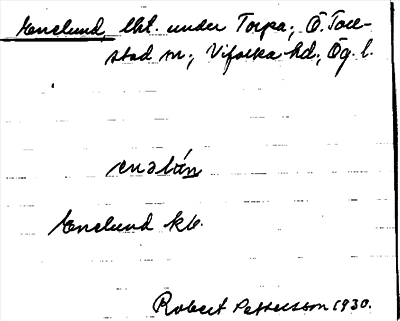 Enelund, lht. under Torpa; Ö. Toll-
stad sn; Vifolka hd; Ög. l.
enəlún
Enelund kb.
Robert Pettersson 1930.